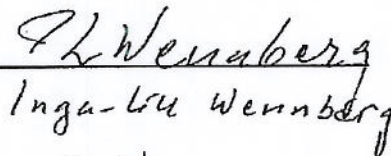 IL Wennberg
Inga-Lill Wennberg